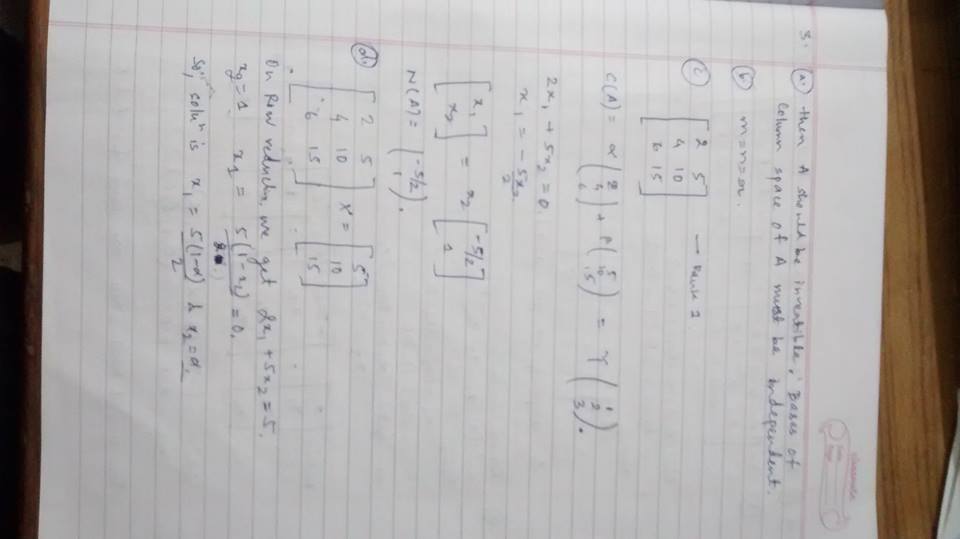 3. (a) then A should be invertible, Bases of
column space of A must be independent.
(b) m=n=r.
(c) [2 5
4 10
6 15] — Rank 1
C(A) = α(2 4 6) + β(5 10 15) = γ(1 2 3).
2x₁ + 5x₂ = 0
x₁ = -5x₂/2
[x₁ x₂] = x₂ [-5/2 1]
N(A) = (-5/2 1).
(d) [2 5
4 10
6 15] X = [5 10 15]
On Row reduction, we get 2x₁ + 5x₂ = 5.
x₂ = 1 x₁ = 5(1-x₂)/2 = 0.
So, soluⁿ is x₁ = 5(1-α)/2 & x₂ = α.